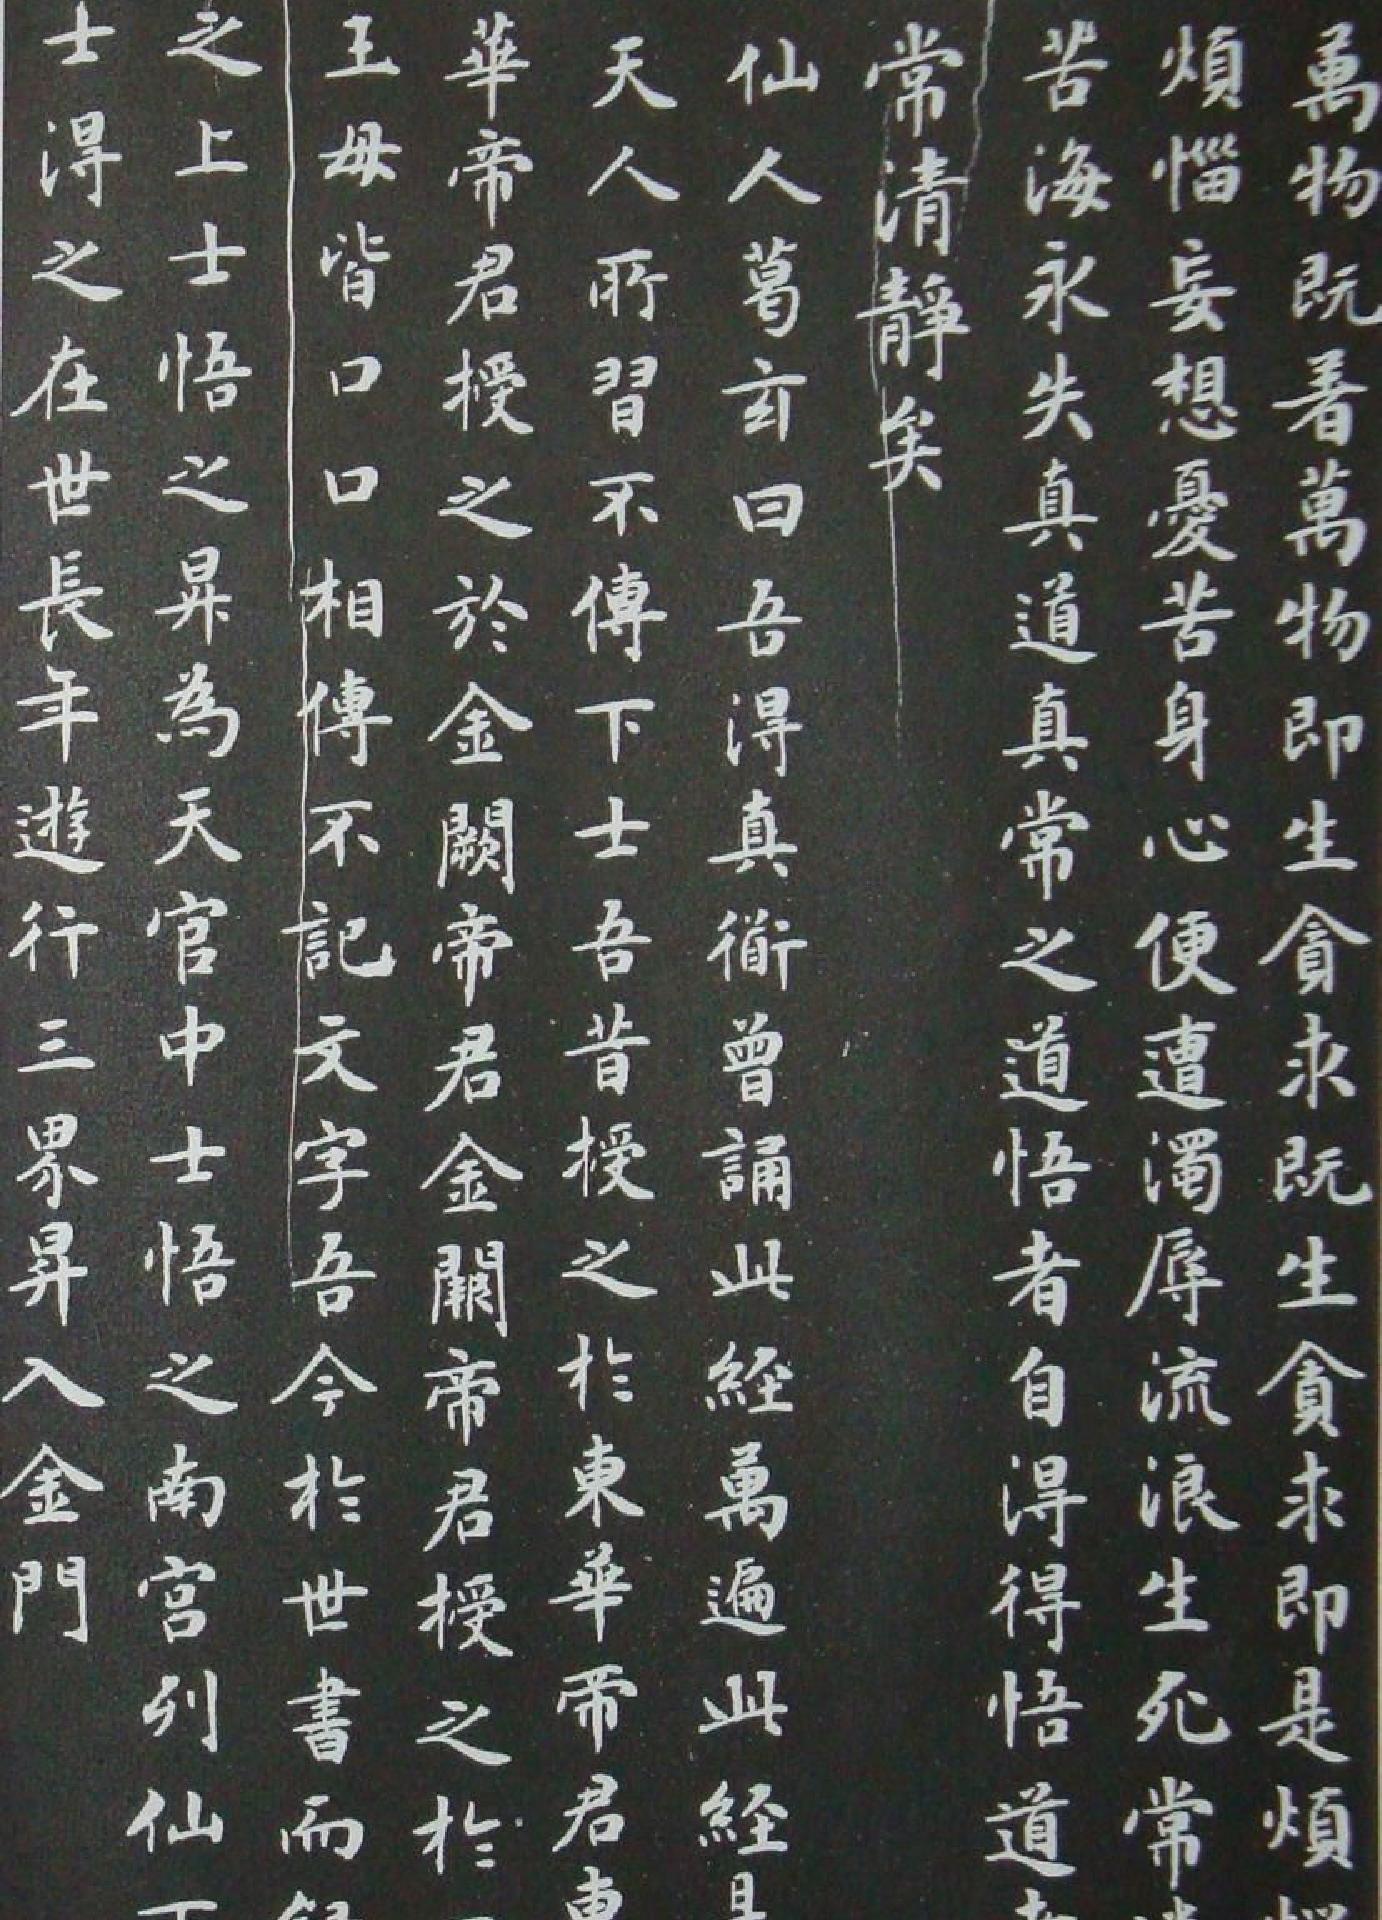 萬物既著萬物即生貪求既生貪求即是煩惱
煩惱妄想憂苦身心便遭濁辱流浪生死常
苦海永失真道真常之道悟者自得得悟道
常清靜矣
仙人葛玄曰吾得真衜曾誦此經萬遍此經
天人所習不傳下士吾昔授之於東華帝君東
華帝君授之於金闕帝君金闕帝君授之於
王母皆口口相傳不記文字吾今於世書而
之上士悟之昇為天官中士悟之南宮列仙下
士得之在世長年遊行三界昇入金門